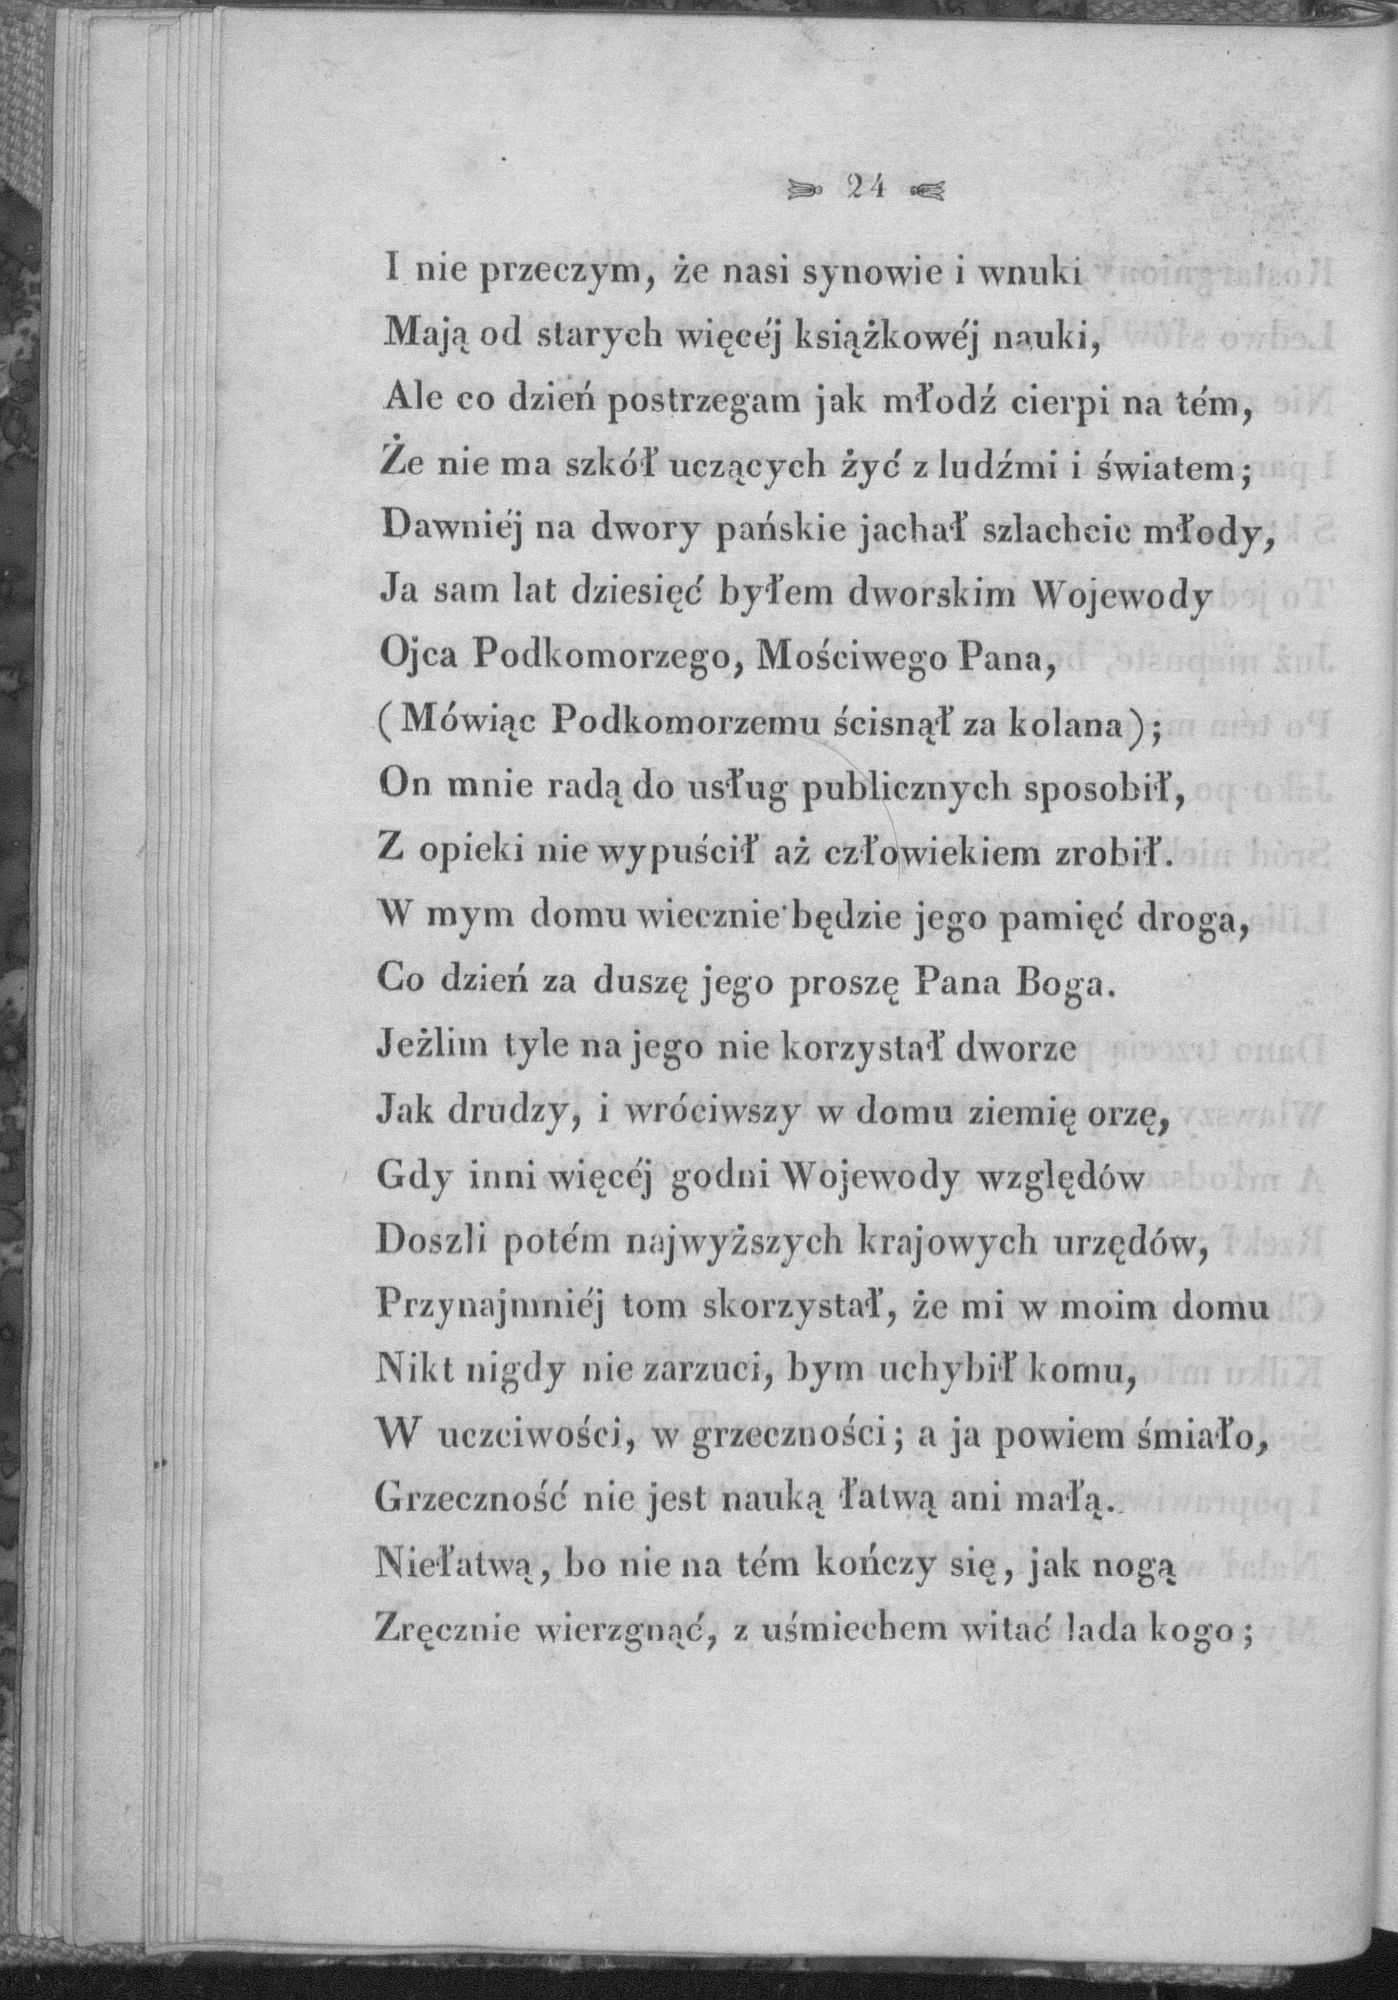 24
I nie przeczym, że nasi synowie i wnuki
Mają od starych więcéj książkowéj nauki,
Ale co dzień postrzegam jak młodź cierpi na tém,
Że nie ma szkół uczących żyć z ludźmi i światem;
Dawniéj na dwory pańskie jachał szlachcic młody,
Ja sam lat dziesięć byłem dworskim Wojewody
Ojca Podkomorzego, Mościwego Pana,
(Mówiąc Podkomorzemu ścisnął za kolana);
On mnie radą do usług publicznych sposobił,
Z opieki nie wypuścił aż człowiekiem zrobił.
W mym domu wiecznie będzie jego pamięć droga,
Co dzień za duszę jego proszę Pana Boga.
Jeżlim tyle na jego nie korzystał dworze
Jak drudzy, i wróciwszy w domu ziemię orzę,
Gdy inni więcéj godni Wojewody względów
Doszli potém najwyższych krajowych urzędów,
Przynajmniéj tom skorzystał, że mi w moim domu
Nikt nigdy nie zarzuci, bym uchybił komu,
W uczciwości, w grzeczności; a ja powiem śmiało,
Grzeczność nie jest nauką łatwą ani małą.
Niełatwą, bo nie na tém kończy się, jak nogą
Zręcznie wierzgnąć, z uśmiechem witać lada kogo;